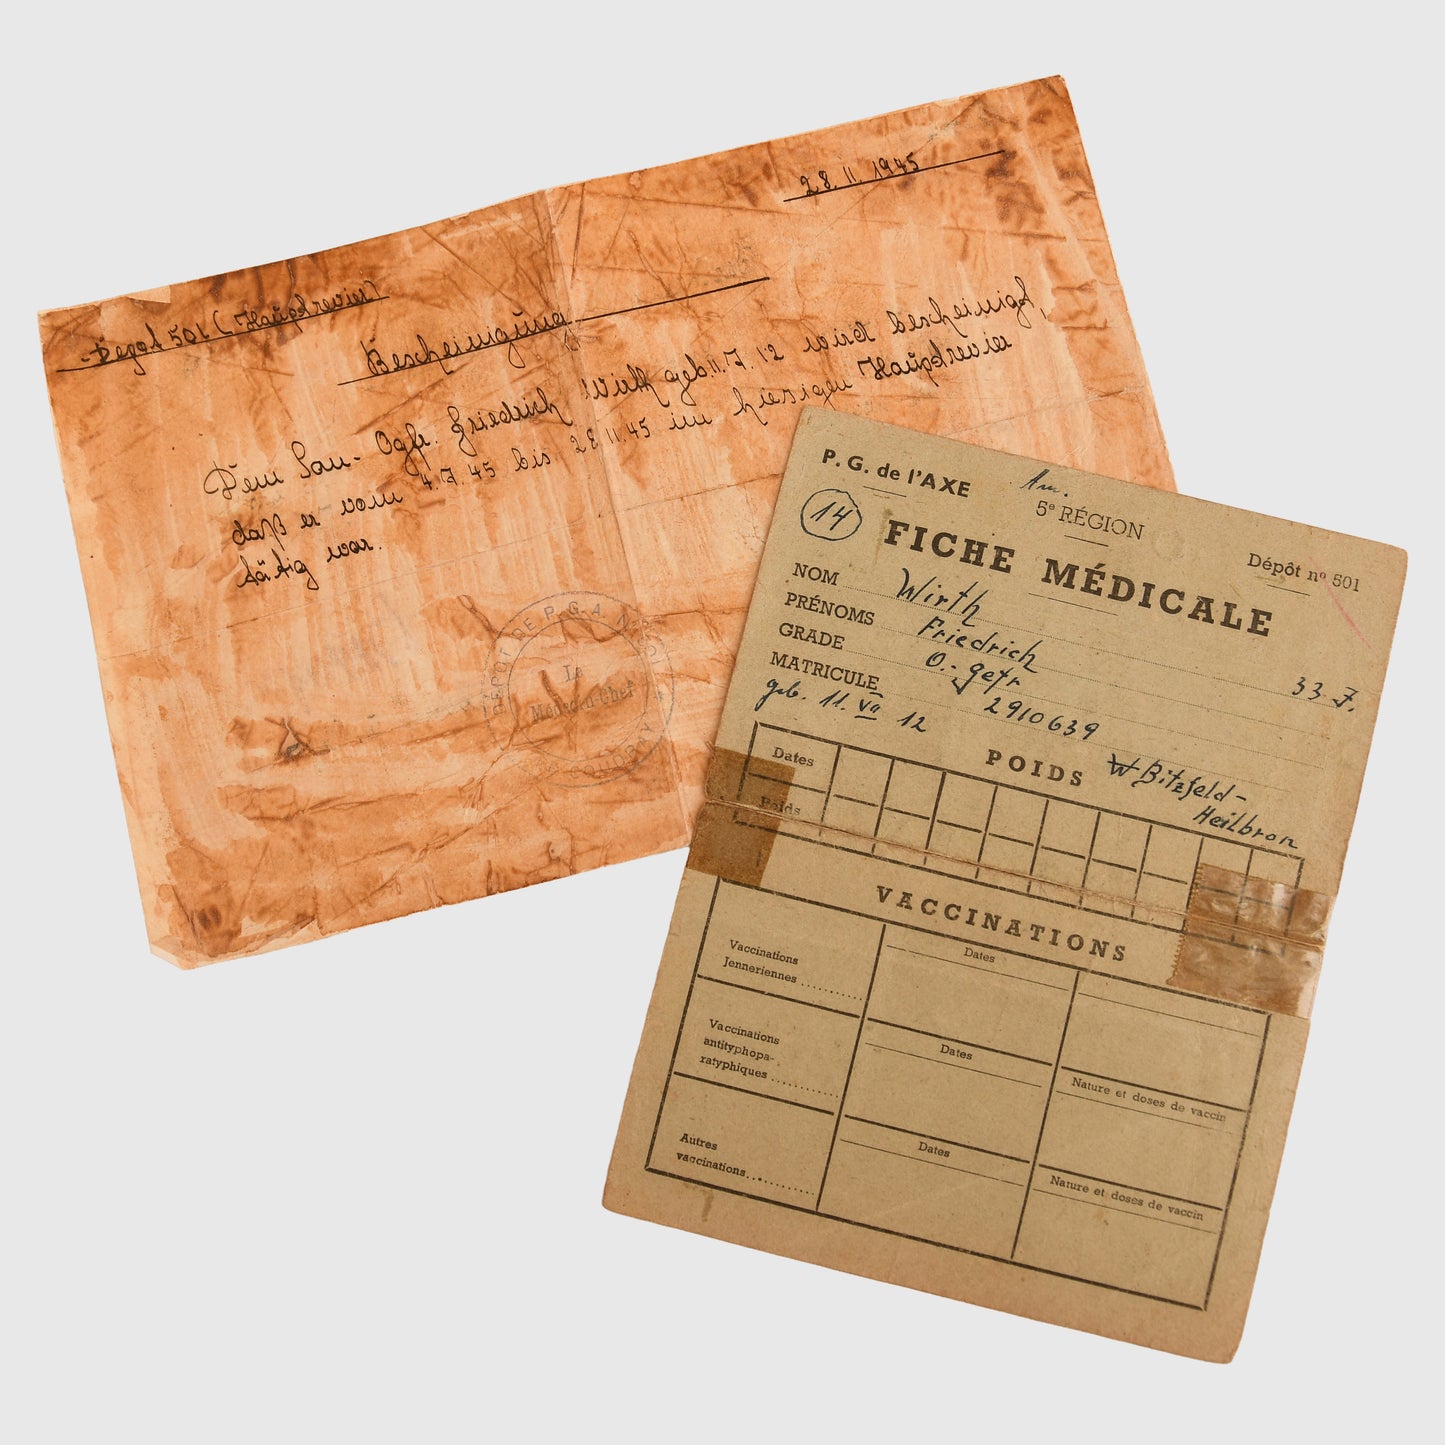 28. 11. 1945
Depot 501 (Hauptrevier)
Bescheinigung
Dem San- Ogfr. Friedrich Wirth geb. 11. 7. 12 wird bescheinigt,
daß er vom 4. 7. 45 bis 28. 11. 45 im hiesigen Hauptrevier
tätig war.
DEPOT DE P.G.A. N° 501
Le
Médecin-Chef
P. G. de l'AXE
5e RÉGION
Dépôt nº 501
14
FICHE MÉDICALE
NOM Wirth
PRÉNOMS Friedrich
GRADE O.-gefr. 33 J.
MATRICULE 2910639
geb. 11. VII 12
W Bitzfeld-
Heilbronn
POIDS
Dates
Poids
VACCINATIONS
Vaccinations
Jenneriennes ..........
Dates
Vaccinations
antityphopa-
ratyphiques ..........
Dates
Nature et doses de vaccin
Autres
vaccinations ..........
Dates
Nature et doses de vaccin